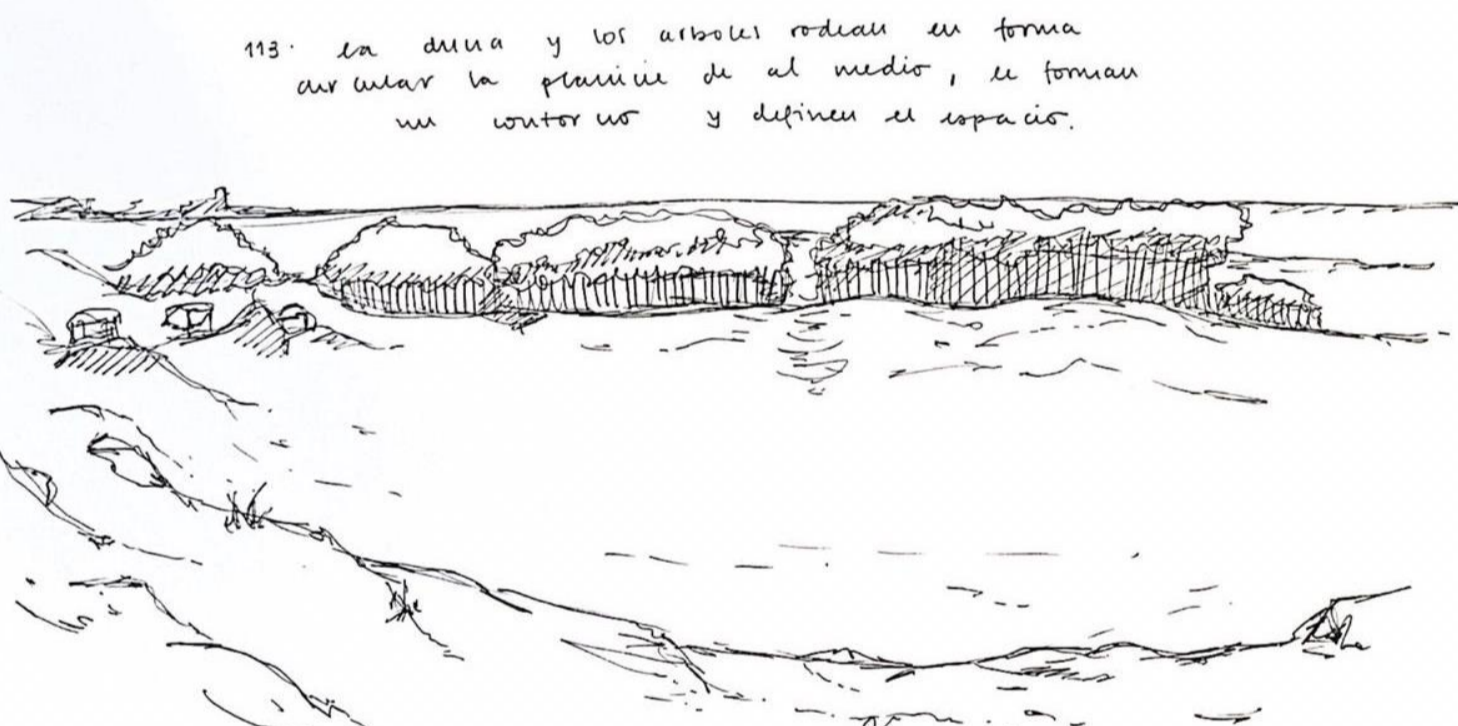 113. la duna y los arboles rodean en forma
circular la planicie de al medio, le forman
un contorno y definen el espacio.